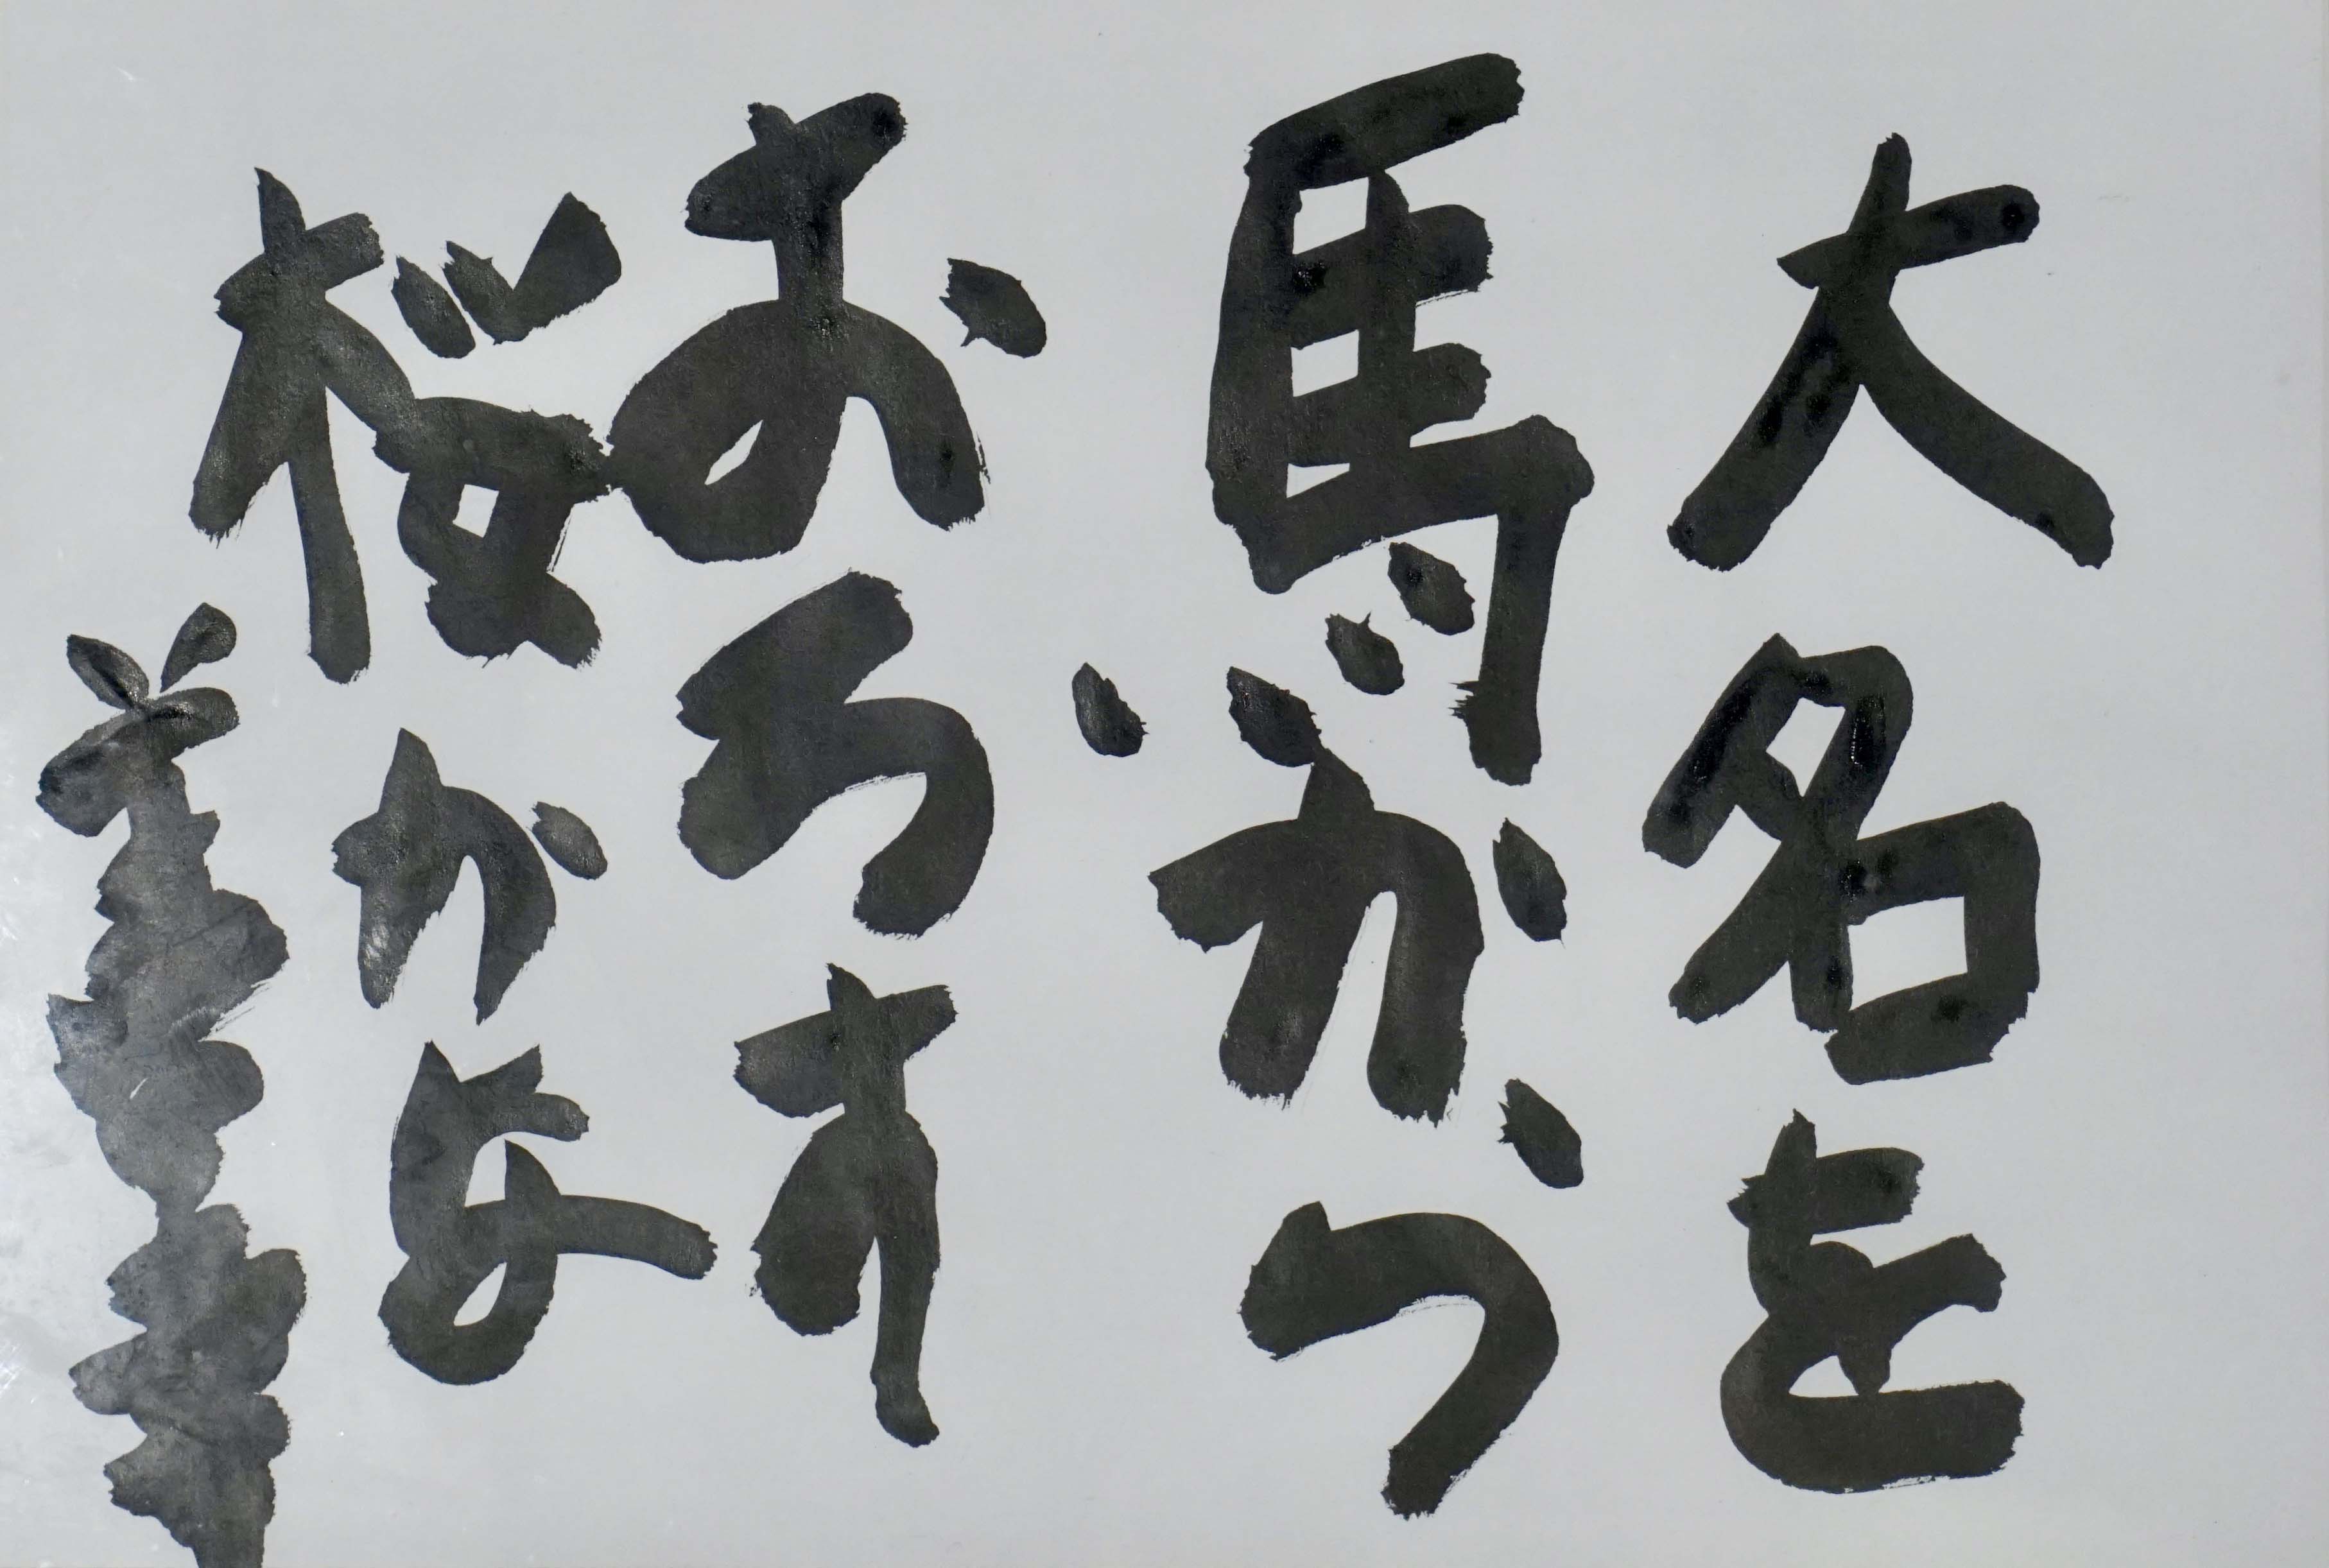 大名を
馬から
おろす
桜かな